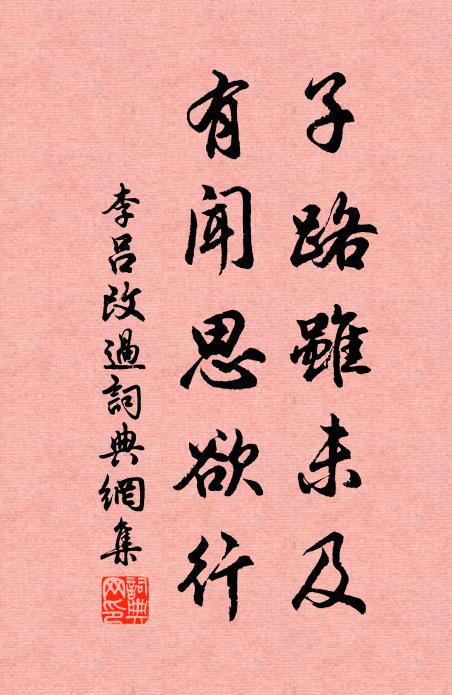 子路雖未及
有聞思欲行
李呂改過詞典網集
詞典網印